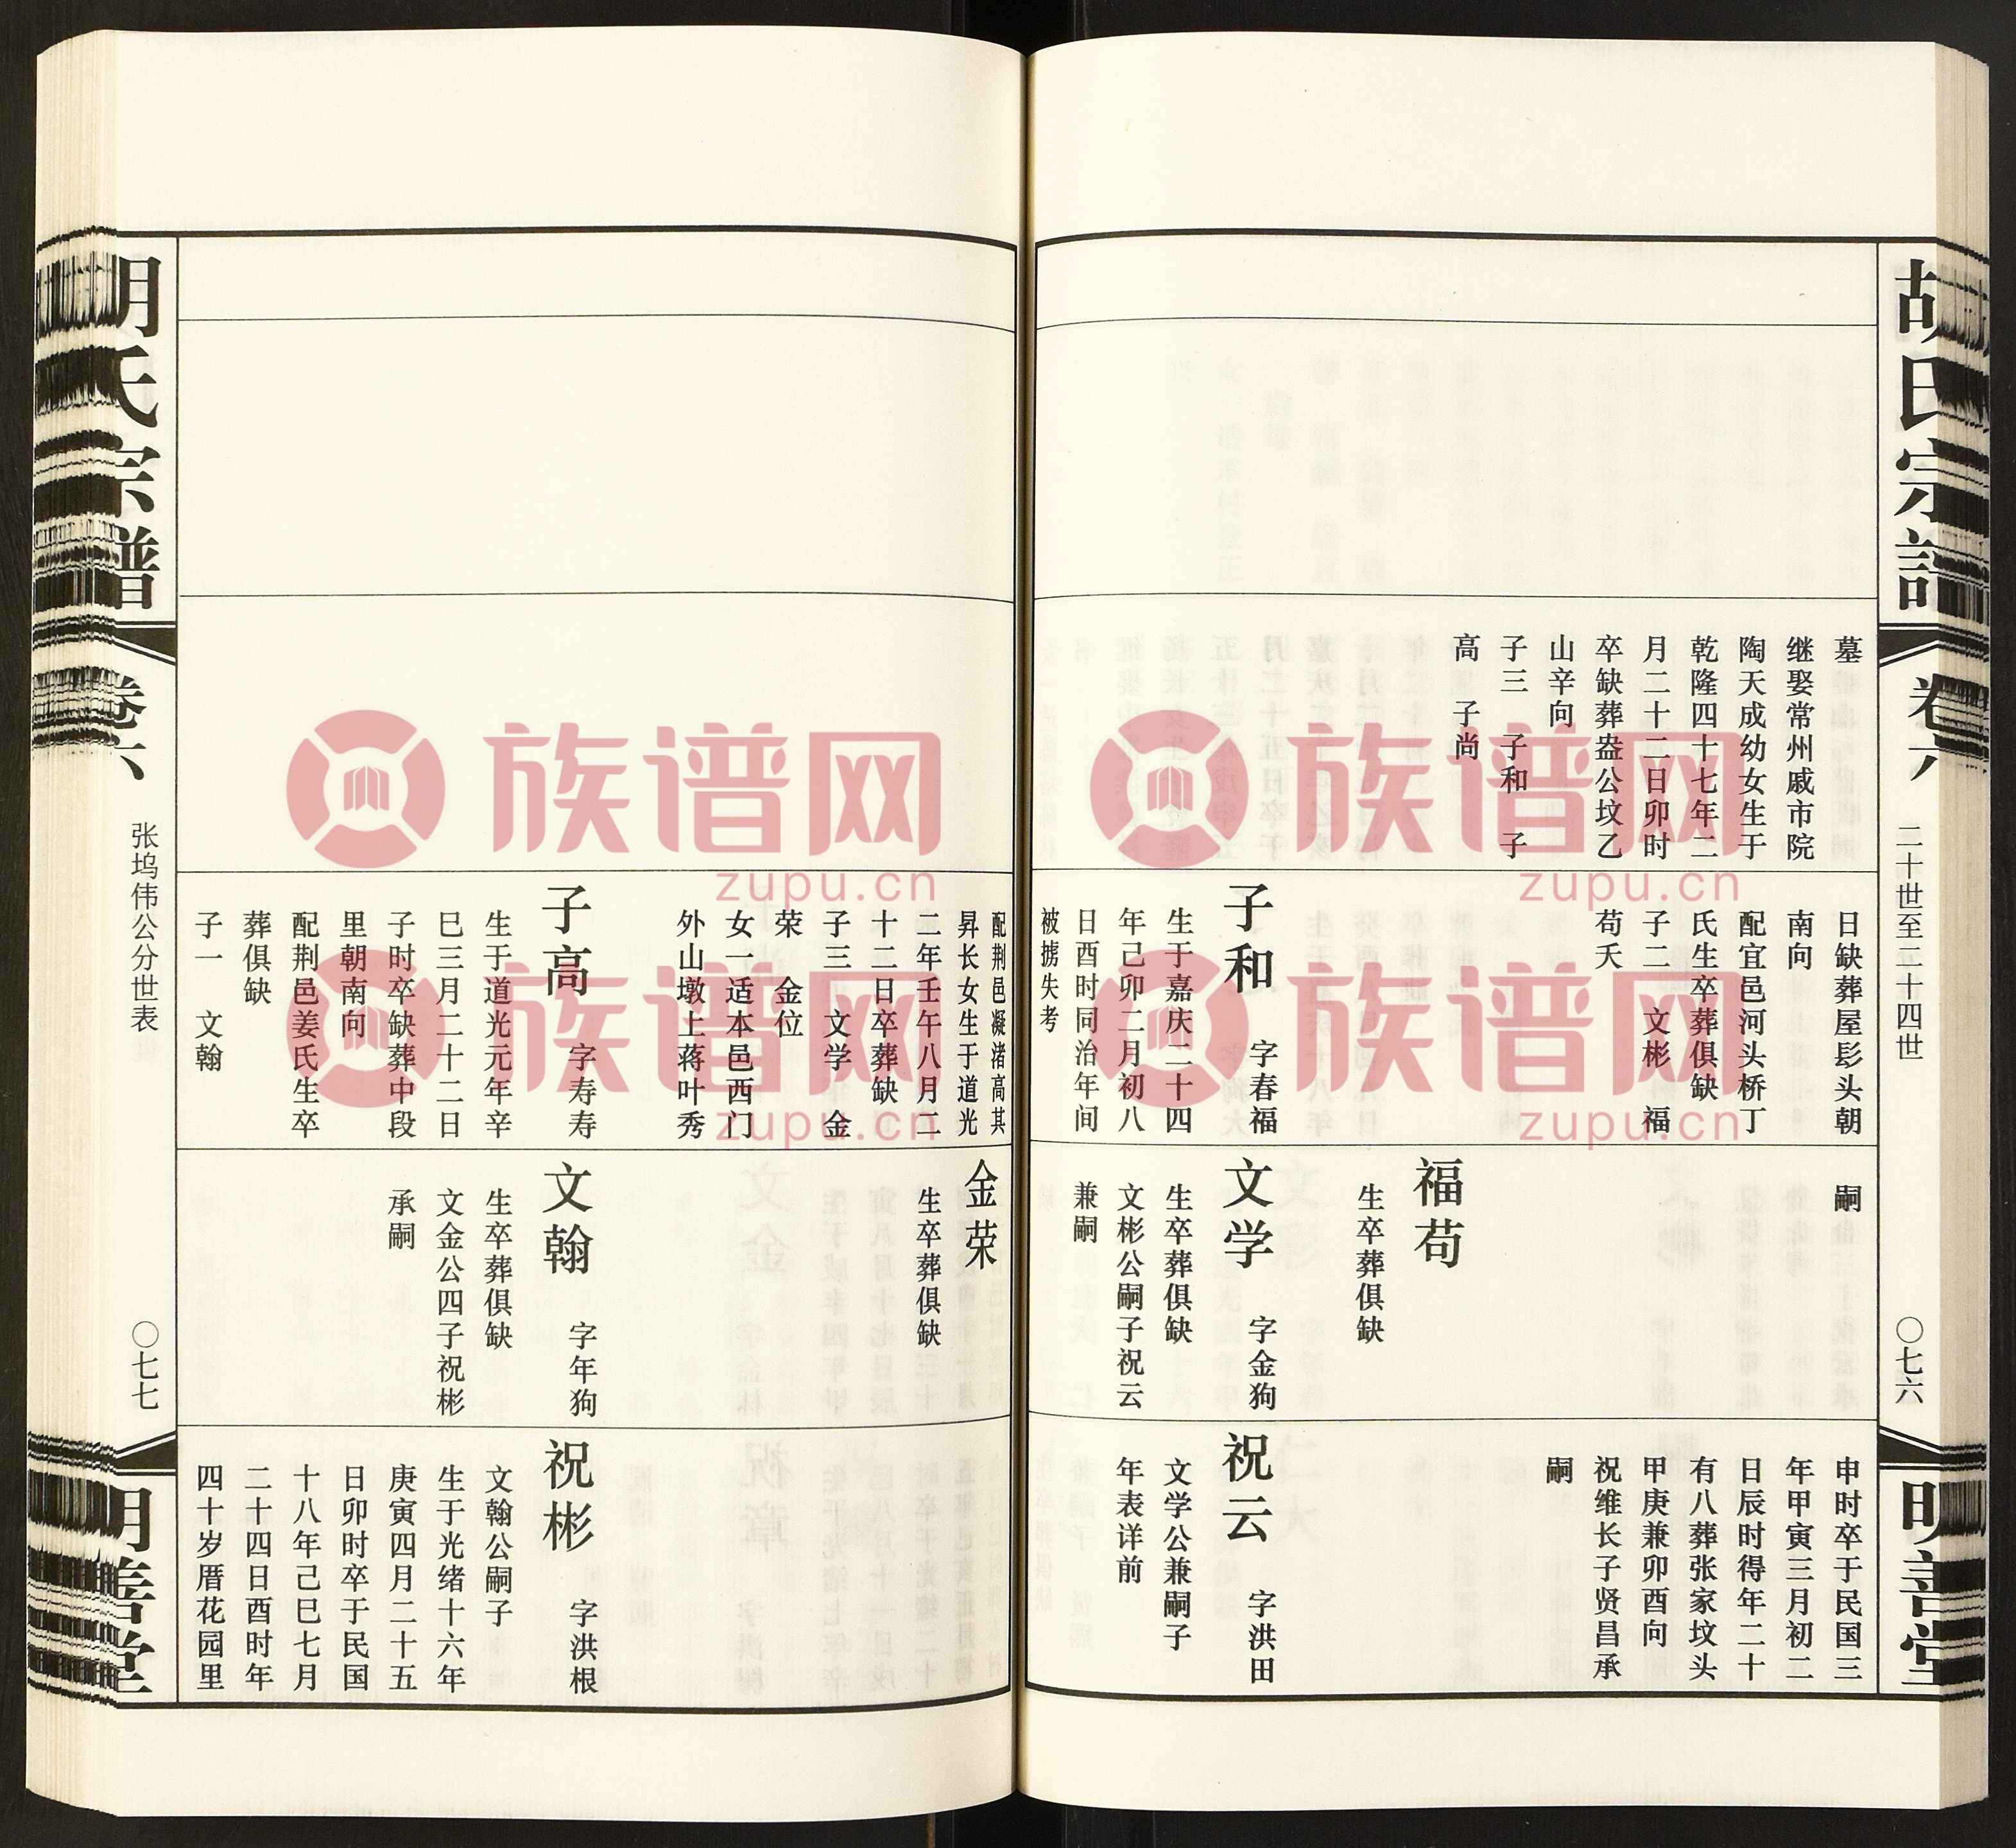 胡氏宗譜
卷六
二十世至二十四世
〇七六
明善堂
墓
继娶常州戚市院
陶天成幼女生于
乾隆四十七年二
月二十二日卯时
卒缺葬盎公坟乙
山辛向
子三 子和 子
高 子尚
日缺葬屋髟头朝
南向
配宜邑河头桥丁
氏生卒葬俱缺
子二 文彬 福
苟夭
子和 字春福
生于嘉庆二十四
年己卯二月初八
日酉时同治年间
被掳失考
嗣
福苟
生卒葬俱缺
文学 字金狗
生卒葬俱缺
文彬公嗣子祝云
兼嗣
申时卒于民国三
年甲寅三月初二
日辰时得年二十
有八葬张家坟头
甲庚兼卯酉向
祝维长子贤昌承
嗣
祝云 字洪田
文学公兼嗣子
年表详前
配荆邑凝渚高其
昇长女生于道光
二年壬午八月二
十二日卒葬缺
子三 文学 金
荣 金位
女一适本邑西门
外山墩上蒋叶秀
子高 字寿寿
生于道光元年辛
巳三月二十二日
子时卒缺葬中段
里朝南向
配荆邑姜氏生卒
葬俱缺
子一 文翰
金荣
生卒葬俱缺
文翰 字年狗
生卒葬俱缺
文金公四子祝彬
承嗣
祝彬 字洪根
文翰公嗣子
生于光绪十六年
庚寅四月二十五
日卯时卒于民国
十八年己巳七月
二十四日酉时年
四十岁厝花园里
胡氏宗譜
卷六
张坞伟公分世表
〇七七
明善堂
族谱网
zupu.cn
族谱网
zupu.cn
族谱网
zupu.cn
族谱网
zupu.cn